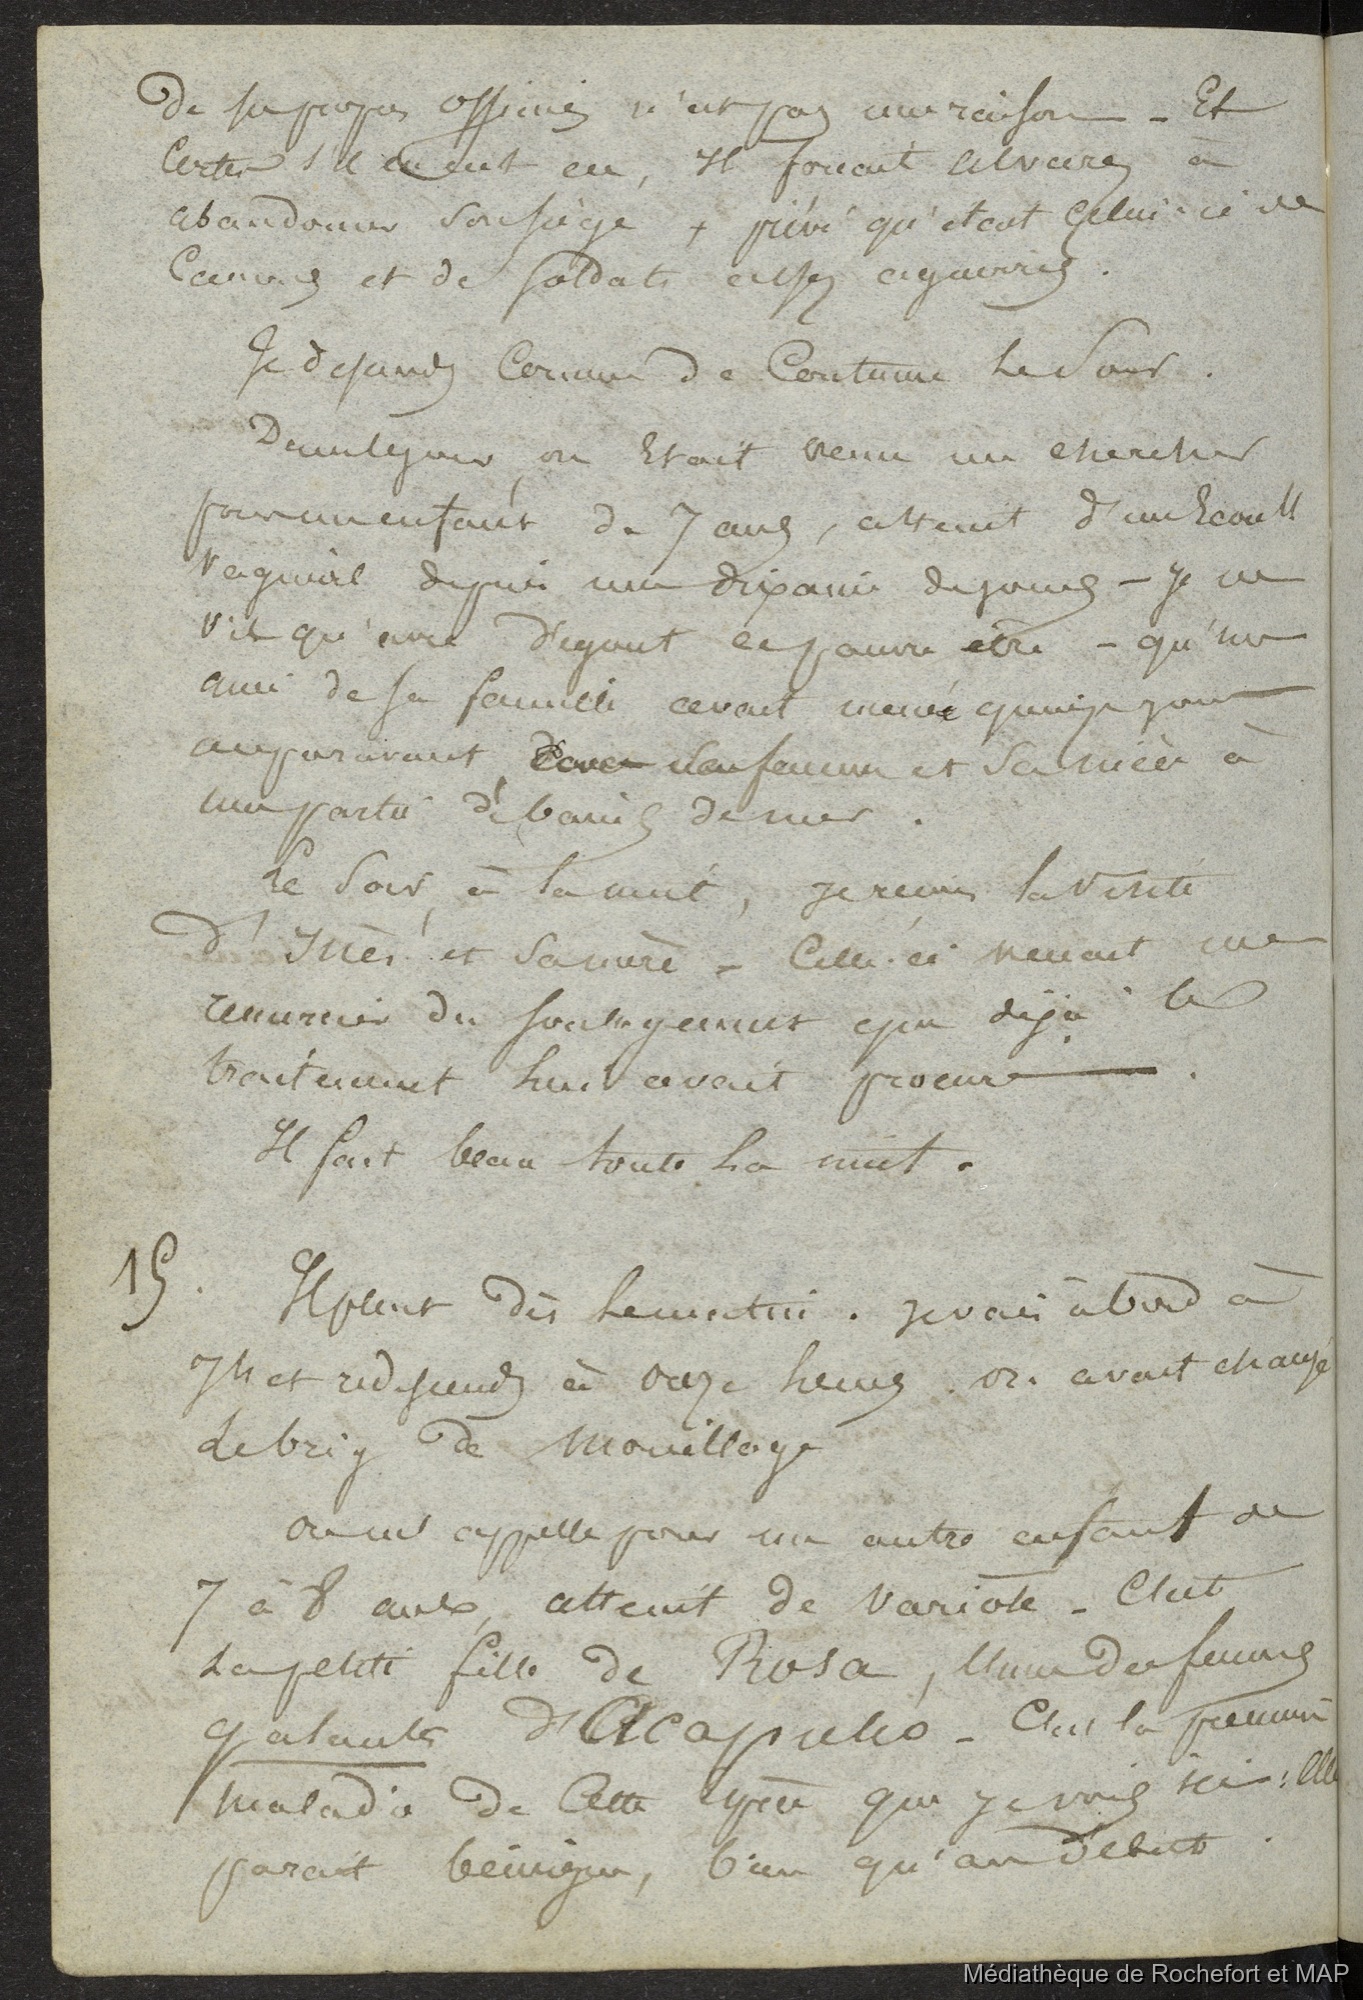 de ses propres officiers n'est pas une raison - Et
Certes s'il en eut eu, Il forçait Alvarez à
abandonner son siège + privé qu'était celui-ci de
Canons et de soldats assez aguerris.
Je descends comme de Coutume le Soir.
Dans le jour, on était venu me chercher
pour un enfant de 7 ans, atteint d'un Ecoult
Vaginal depuis une dixaine de jours - Je ne
vis qu'avec dégout ce pauvre être - qu'un
ami de sa famille avait mené quinze jours
auparavant, avec sa femme et sa nièce à
une partie de bains de mer.
Le Soir, à la nuit, je reçois la visite
d'Inès et sa mère - Celle-ci venait me
remercier du soulagement que déjà le
traitement lui avait procuré.
Il fait beau toute la nuit.
15. Il pleut dès le matin. je vais à bord à
7h et redescends à onze heures. on avait changé
Le brig de Mouillage
on me appelle pour un autre enfant de
7 à 8 ans, atteint de Variole - C'est
La petite fille de Rosa, l'une des femmes
galantes d'Acapulco - C'est la première
maladie de Cette que je vois ici: Elle
parait bénigne, bien qu'au début.
Médiathèque de Rochefort et MAP